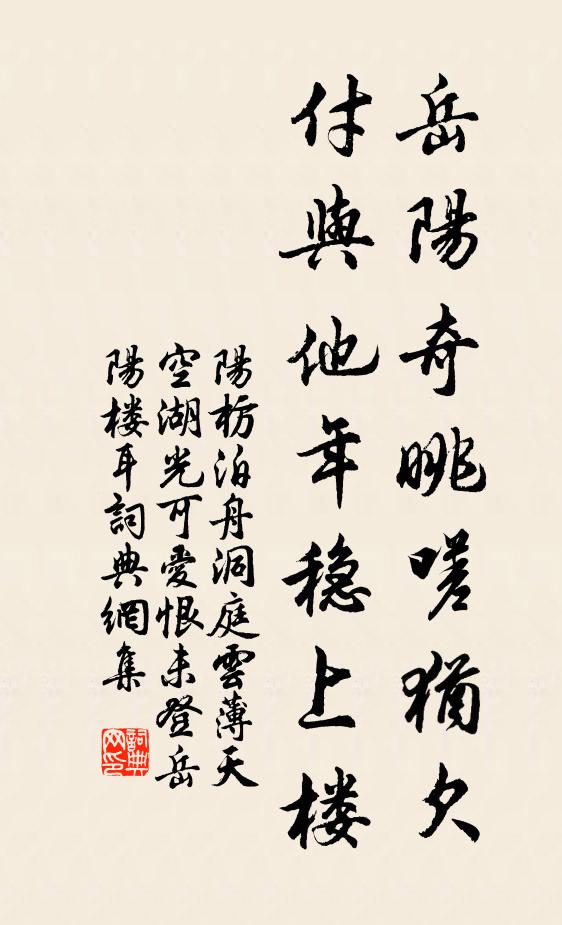 岳陽奇眺嗟猶欠
付與他年稳上楼
陽枋泊舟洞庭雲薄天
空湖光可愛恨未登岳
陽楼耳詞典網集
詞典
网印